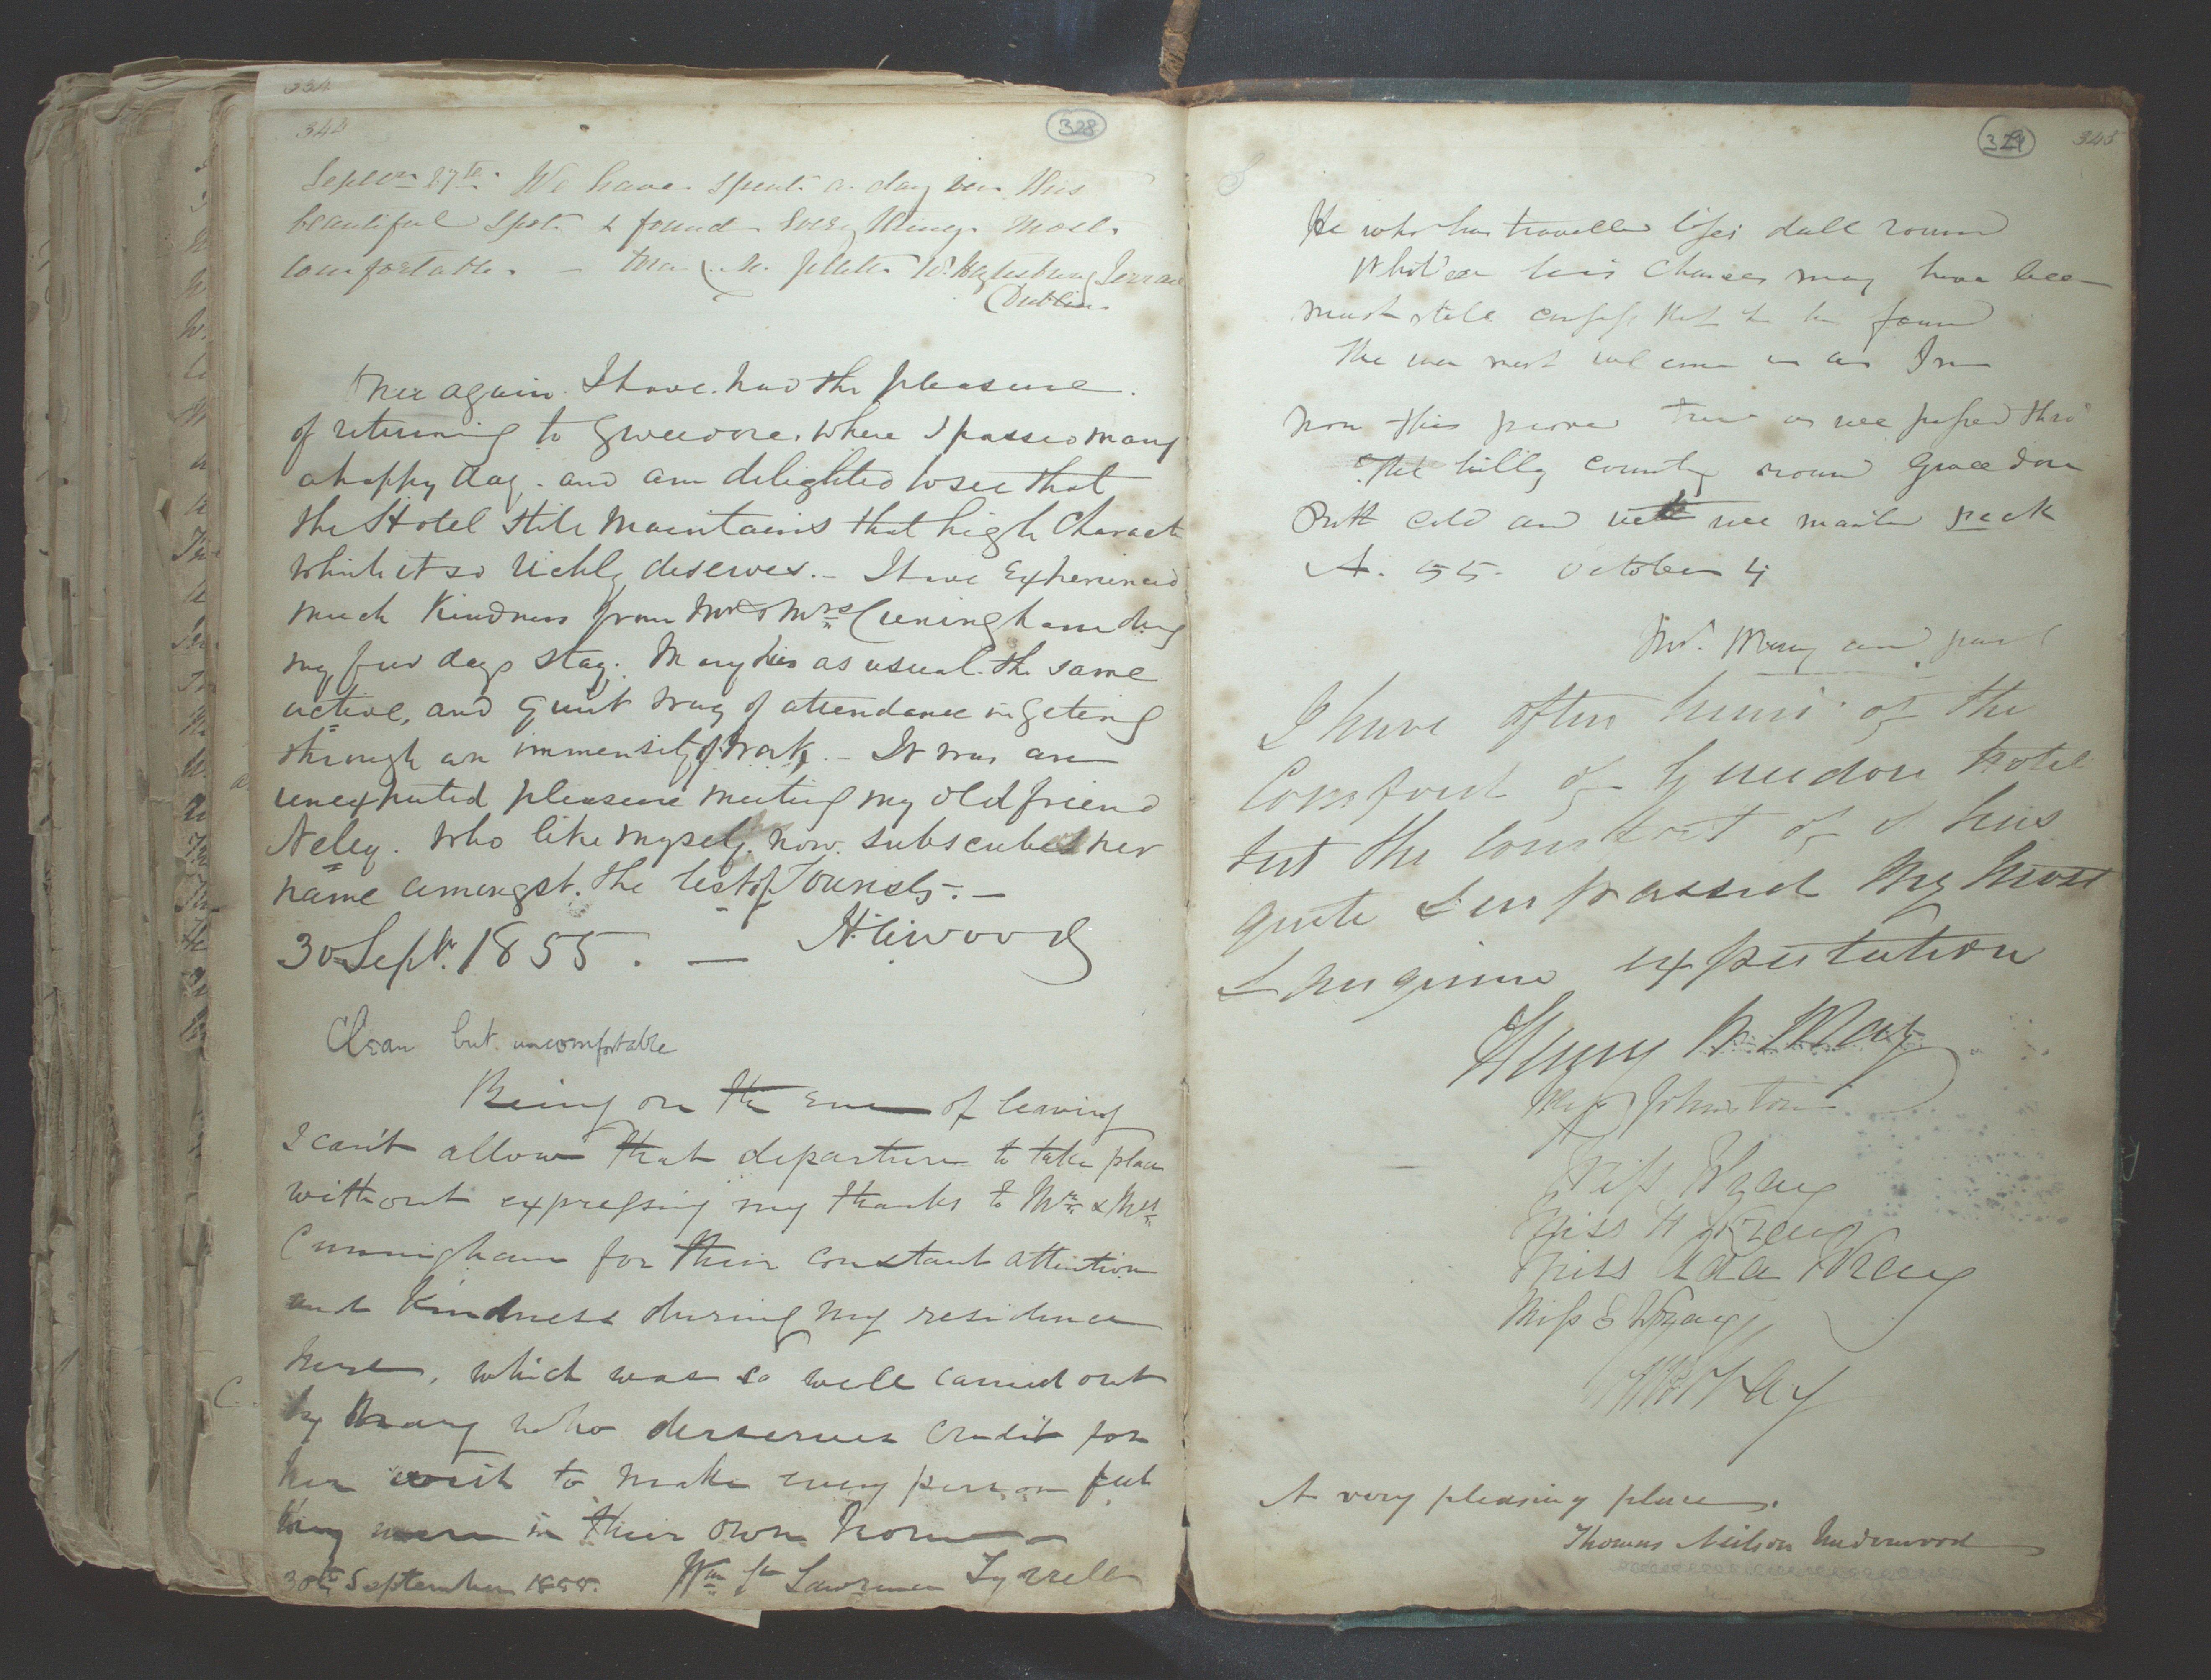 334
344
328
Septem 27th. We have spent a day in this
beautiful spot & found every thing most
comfortable. — Hatesbury Terrace
Dublin.
Once again I have had the pleasure
of returning to Gweedore, where I passed many
a happy day. and am delighted to see that
the Hotel still maintains that high Charact
which it so richly deserves. — I have Experienced
much Kindness from Mr & Mrs Cuningham durg
my few days stay. Mary has as usual the same
active, and quiet way of attendance in geting
through an immensity of work. — It was an
unexpected pleasure meeting my old friend
Neley. who like myself now subscribes her
name amongst the list of Tourists. —
30 Sept. 1855. — Atiwood
Clean but uncomfortable
Being on the eve of leaving
I can't allow that departure to take place
without expressing my thanks to Mr & Mrs
Cunningham for their constant attention
and Kindness during my residence
here, which was so well carried out
by Mary who deserves credit for
her wish to make every person feel
they were in their own home
30th September 1855. Wm St Lawrence Tyrrell
329
345
He who has travelled life's dull round
What'ere his chances may have been
must still confess that he has found
The warmest welcome in an Inn
Now this proved true as we passed thro'
The hilly country round Gweedore
Both cold and wet we
A. 55. October 4
I have often heard of the
Comfort of Gweedore Hotel
but the comfort of it has
quite surpassed my most
Sanguine expectation
Henry B. Wray
Miss Johnston
Miss Wray
Miss H Wray
Miss Ada Wray
Miss E Wray
Wray
A very pleasing place.
Thomas Neilson Underwood